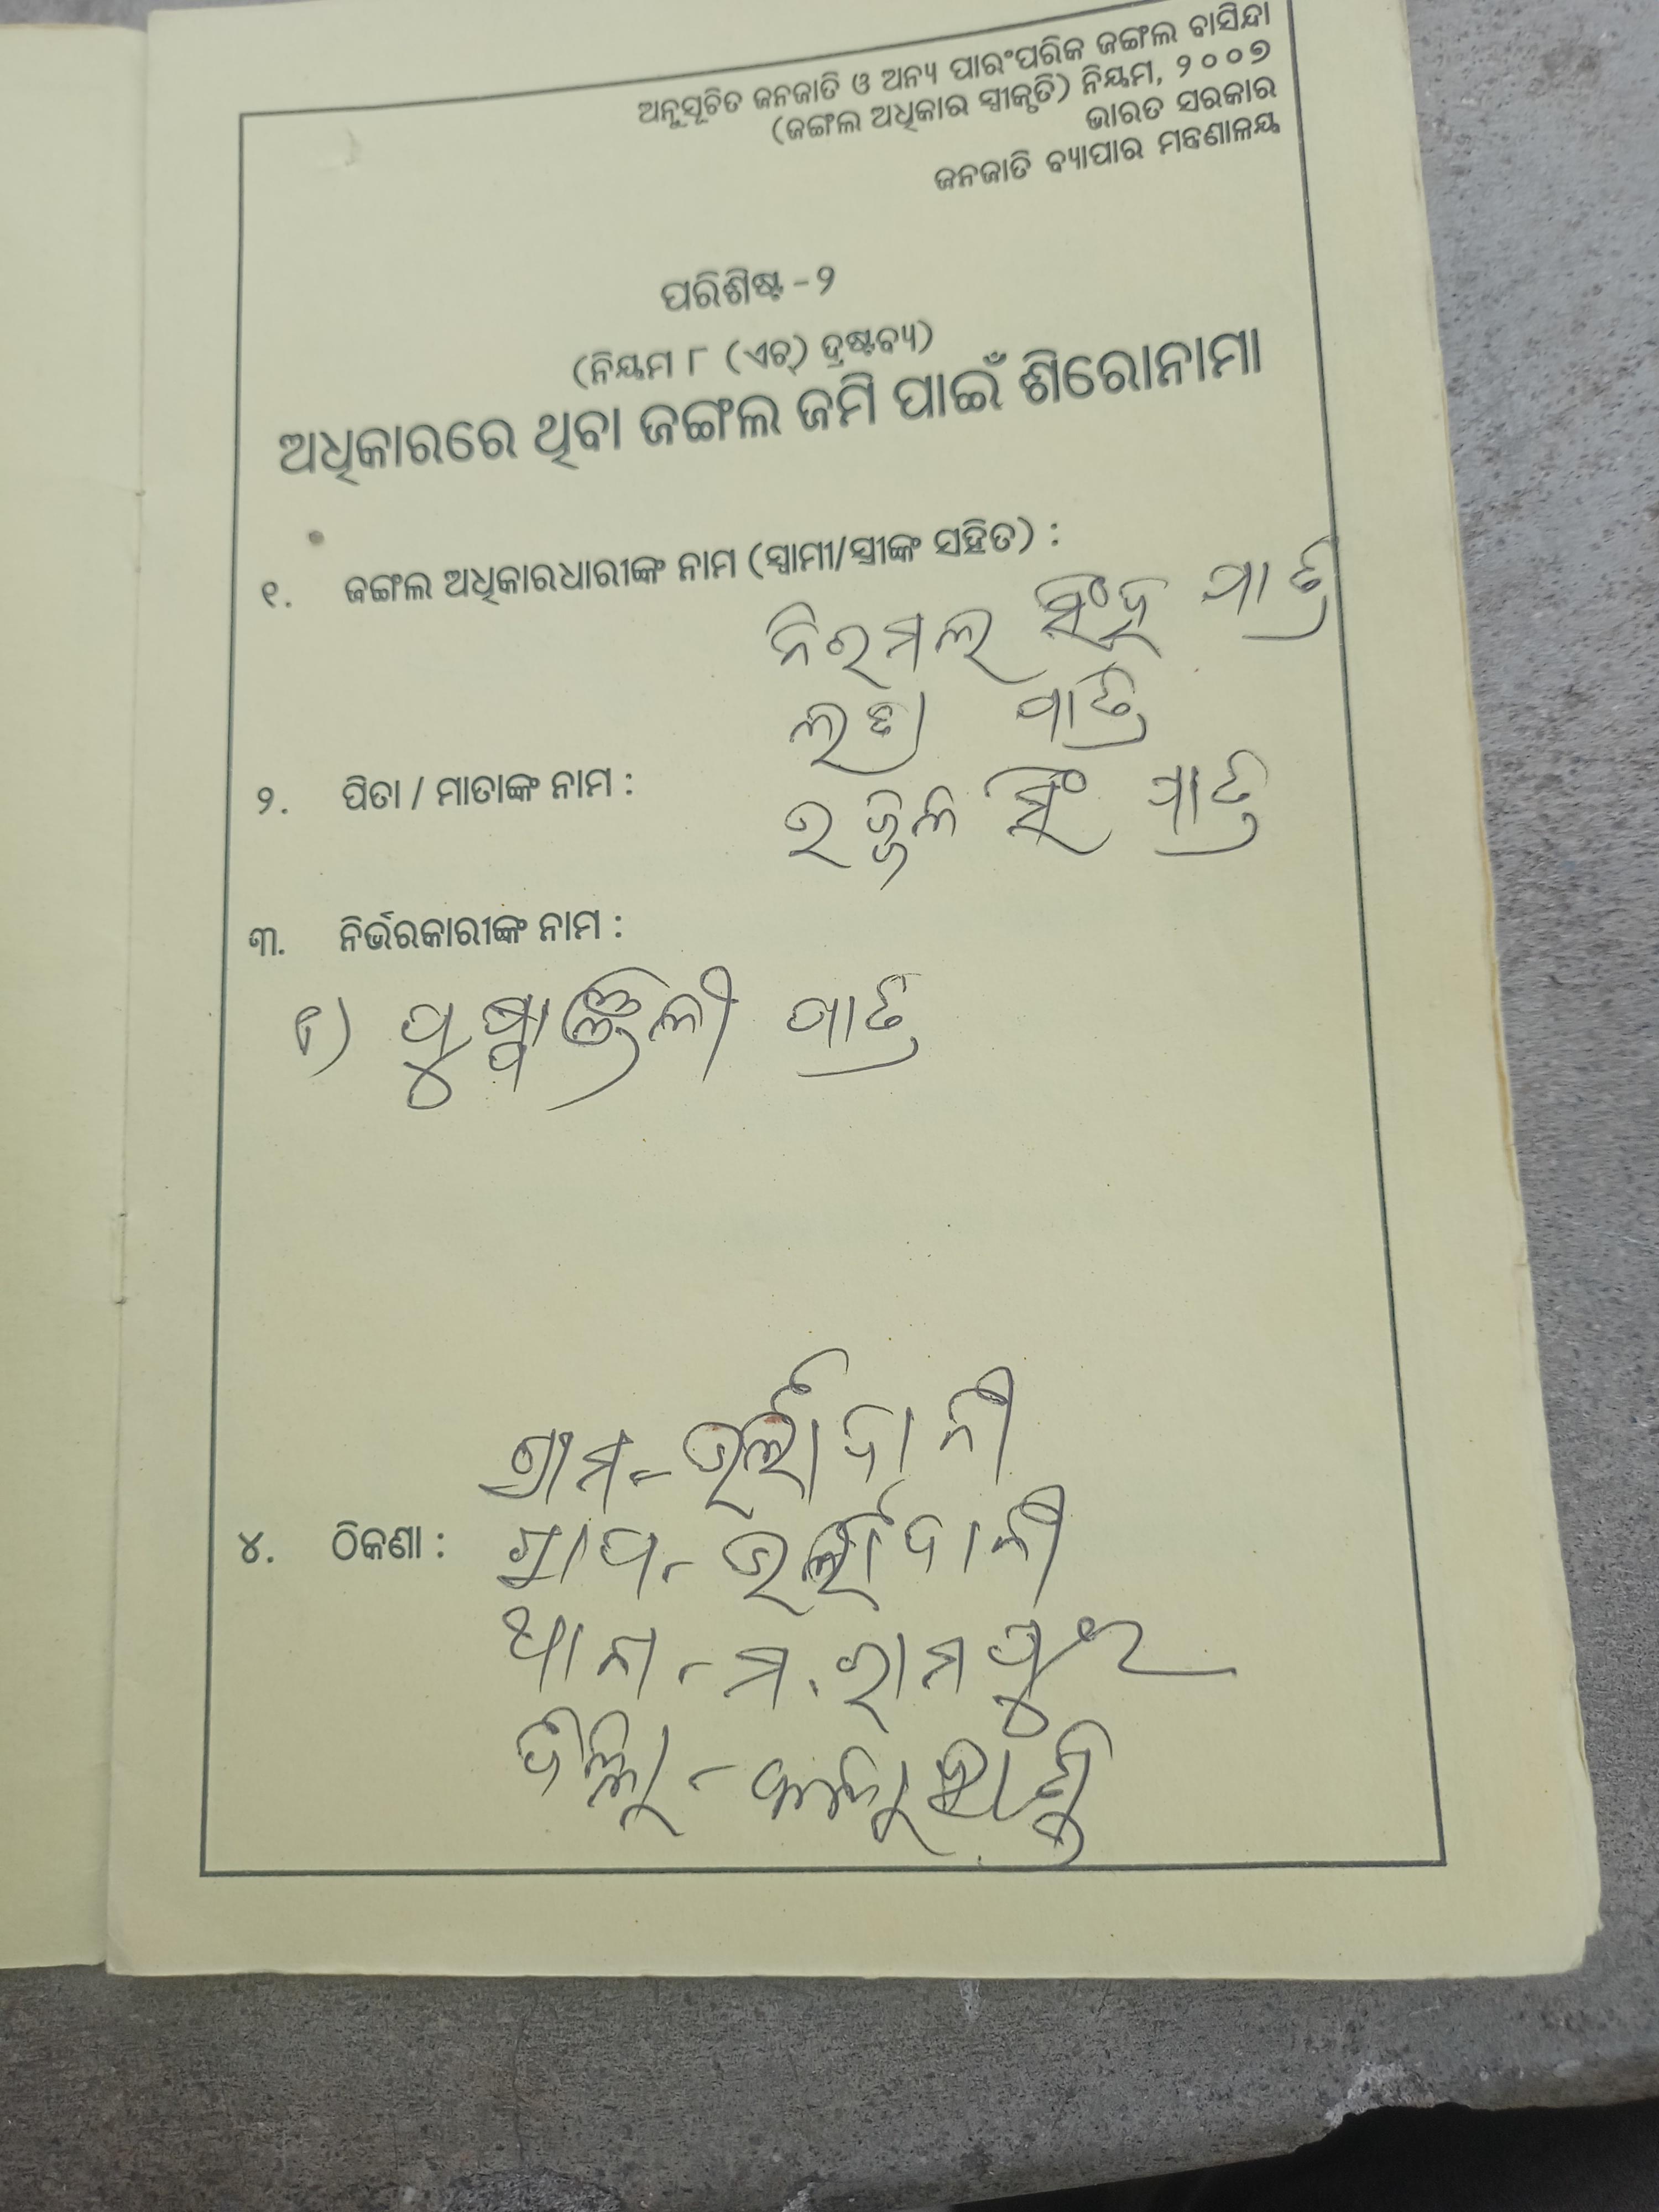 ଅନୁସୂଚିତ ଜନଜାତି ଓ ଅନ୍ୟ ପାରଂପରିକ ଜଙ୍ଗଲ ବାସିନ୍ଦା
(ଜଙ୍ଗଲ ଅଧିକାର ସ୍ୱୀକୃତି) ନିୟମ, ୨୦୦୭
ଭାରତ ସରକାର
ଜନଜାତି ବ୍ୟାପାର ମନ୍ତ୍ରଣାଳୟ
ପରିଶିଷ୍ଟ - ୨
(ନିୟମ ୮ (ଏଚ୍) ଦ୍ରଷ୍ଟବ୍ୟ)
ଅଧିକାରରେ ଥିବା ଜଙ୍ଗଲ ଜମି ପାଇଁ ଶିରୋନାମା
୧. ଜଙ୍ଗଲ ଅଧିକାରଧାରୀଙ୍କ ନାମ (ସ୍ୱାମୀ/ସ୍ତ୍ରୀଙ୍କ ସହିତ) :
ନିରମଲ ସିଂହ
୨. ପିତା / ମାତାଙ୍କ ନାମ :
ସିଂ
୩. ନିର୍ଭରକାରୀଙ୍କ ନାମ :
୧) ପୁଷ୍ପାଞ୍ଜଳୀ
ଗ୍ରାମ -
୪. ଠିକଣା :
ଥାନା - ମ. ରାମପୁର
ଜିଲ୍ଲା - କଳାହାଣ୍ଡି